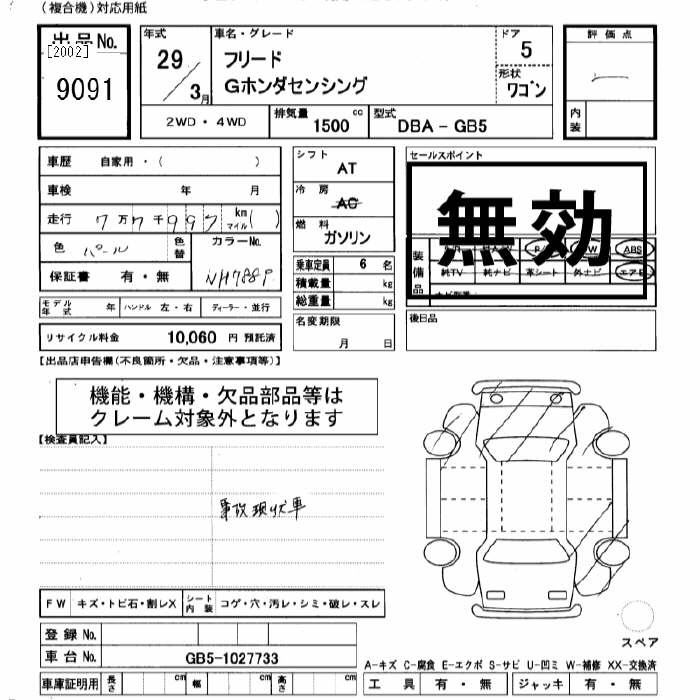 (複合機)対応用紙
出品No.
[2002]
9091
年式
29
3月
車名・グレード
フリード
Gホンダセンシング
ドア
5
形状
ワゴン
評価点
内装
2WD・4WD
排気量
1500 cc
型式
DBA - GB5
車歴 自家用・( )
車検 年 月
走行 7万7千997 km マイル ( )
色 パール 色替
カラーNo.
NH788P
保証書 有・無
モデル年式 年 ハンドル 左・右 ディーラー・並行
リサイクル料金 10,060 円 預託済
シフト
AT
冷房
AC
燃料
ガソリン
乗車定員 6 名
積載量 kg
総重量 kg
名変期限
月 日
セールスポイント
無効
装備品
ABS
純TV 純ナビ 革シート 外ナビ エアB
後日品
【出品店申告欄(不良箇所・欠品・注意事項等)】
機能・機構・欠品部品等は
クレーム対象外となります
【検査員記入】
事故現状車
FW キズ・トビ石・割レX シート内装 コゲ・穴・汚レ・シミ・破レ・スレ
登録No.
車台No. GB5-1027733
車庫証明用 長さ cm 幅 cm 高さ cm
スペア
A-キズ C-腐食 E-エクボ S-サビ U-凹ミ W-補修 XX-交換済
工具 有・無 ジャッキ 有・無